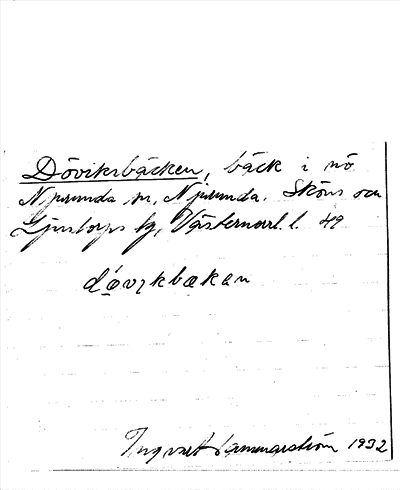 Döviksbäcken, bäck i nö
Njurunda sn, Njurunda. Sköns och
Ljustorps tg, Västernorrl. l. 49
Ingvart Hammarström 1932